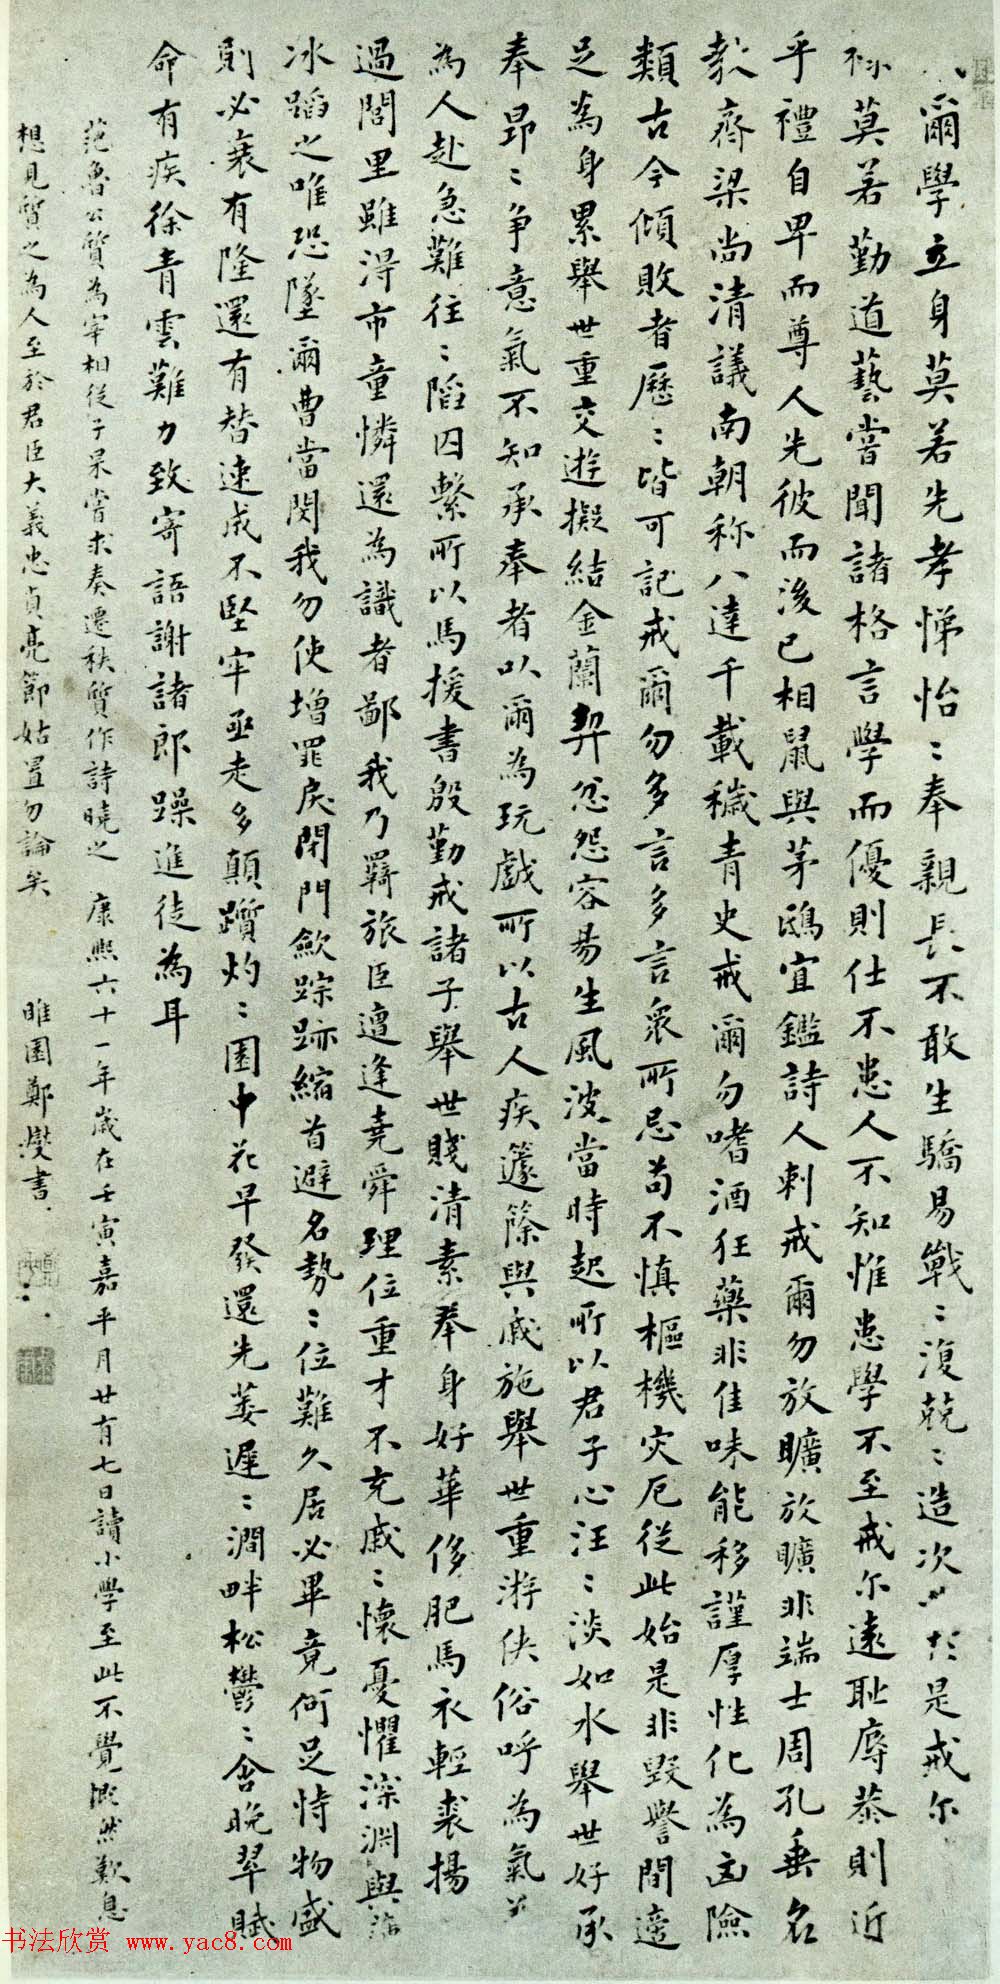 爾學立身莫若先孝悌怡〻奉親長不敢生驕易戰〻復兢〻造次必於是戒尔
祿莫若勤道藝嘗聞諸格言學而優則仕不患人不知惟患學不至戒尔遠恥辱恭則近
乎禮自卑而尊人先彼而後己相鼠與茅鴟宜鑑詩人刺戒爾勿放曠放曠非端士周孔垂名
教齊梁尚清議南朝称八達千載穢青史戒爾勿嗜酒狂藥非佳味能移謹厚性化為凶險
類古今傾敗者歷〻皆可記戒爾勿多言多言衆所忌苟不慎樞機灾厄從此始是非毀譽間適
足為身累舉世重交遊擬結金蘭契忿怨容易生風波當時起所以君子心汪〻淡如水舉世好承
奉昂〻爭意氣不知承奉者以爾為玩戲所以古人疾籧篨與戚施舉世重游俠俗呼為氣義
為人赴急難往〻陷囚繫所以馬援書殷勤戒諸子舉世賤清素奉身好華侈肥馬衣輕裘揚
過閭里雖得市童憐還為識者鄙我乃羇旅臣遭逢堯舜理位重才不充戚〻懷憂懼深淵與薄
冰蹈之唯恐墜爾曹當閔我勿使增罪戾閉門歛踪跡縮首避名勢〻位難久居必畢竟何足恃物盛
則必衰有隆還有替速成不堅牢亟走多顛躓灼〻園中花早發還先萎遲〻澗畔松鬱〻含晚翠賦
命有疾徐青雲難力致寄語謝諸郎躁進徒為耳
范魯公質為宰相從子杲嘗求奏遷秩質作詩曉之 康熙六十一年歲在壬寅嘉平月廿有七日讀小學至此不覺慨然歎息
想見質之為人至於君臣大義忠貞亮節姑置勿論矣 睢園鄭燮書
书法欣赏 www.yac8.com